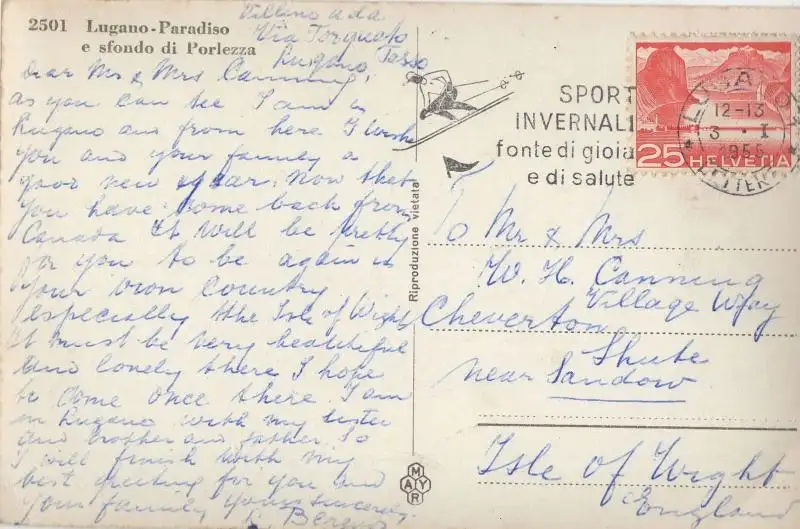 2501 Lugano-Paradiso
e sfondo di Porlezza
Villino ada
Via Torquato
Tasso
Lugano
Dear Mr & Mrs Canning,
as you can see I am in
Lugano and from here I wish
you and your family a
good new year. Now that
you have come back from
Canada it will be pretty
for you to be again in
your own country
especially the Isle of Wight
it must be very beautiful
and lonely there I hope
to come once there. I am
in Lugano with my sister
and brother and father. So
I will finish with my
best greeting for you and
your family yours sincerely
SPORT
INVERNALI
fonte di gioia
e di salute
LUGANO
12-13
3. I
1955
LETTERE
25 HELVETIA
Riproduzione vietata
MAYR
To Mr & Mrs
W. H. Canning
Village Way
Cheverton
Shute
near Sandow
Isle of Wight
England